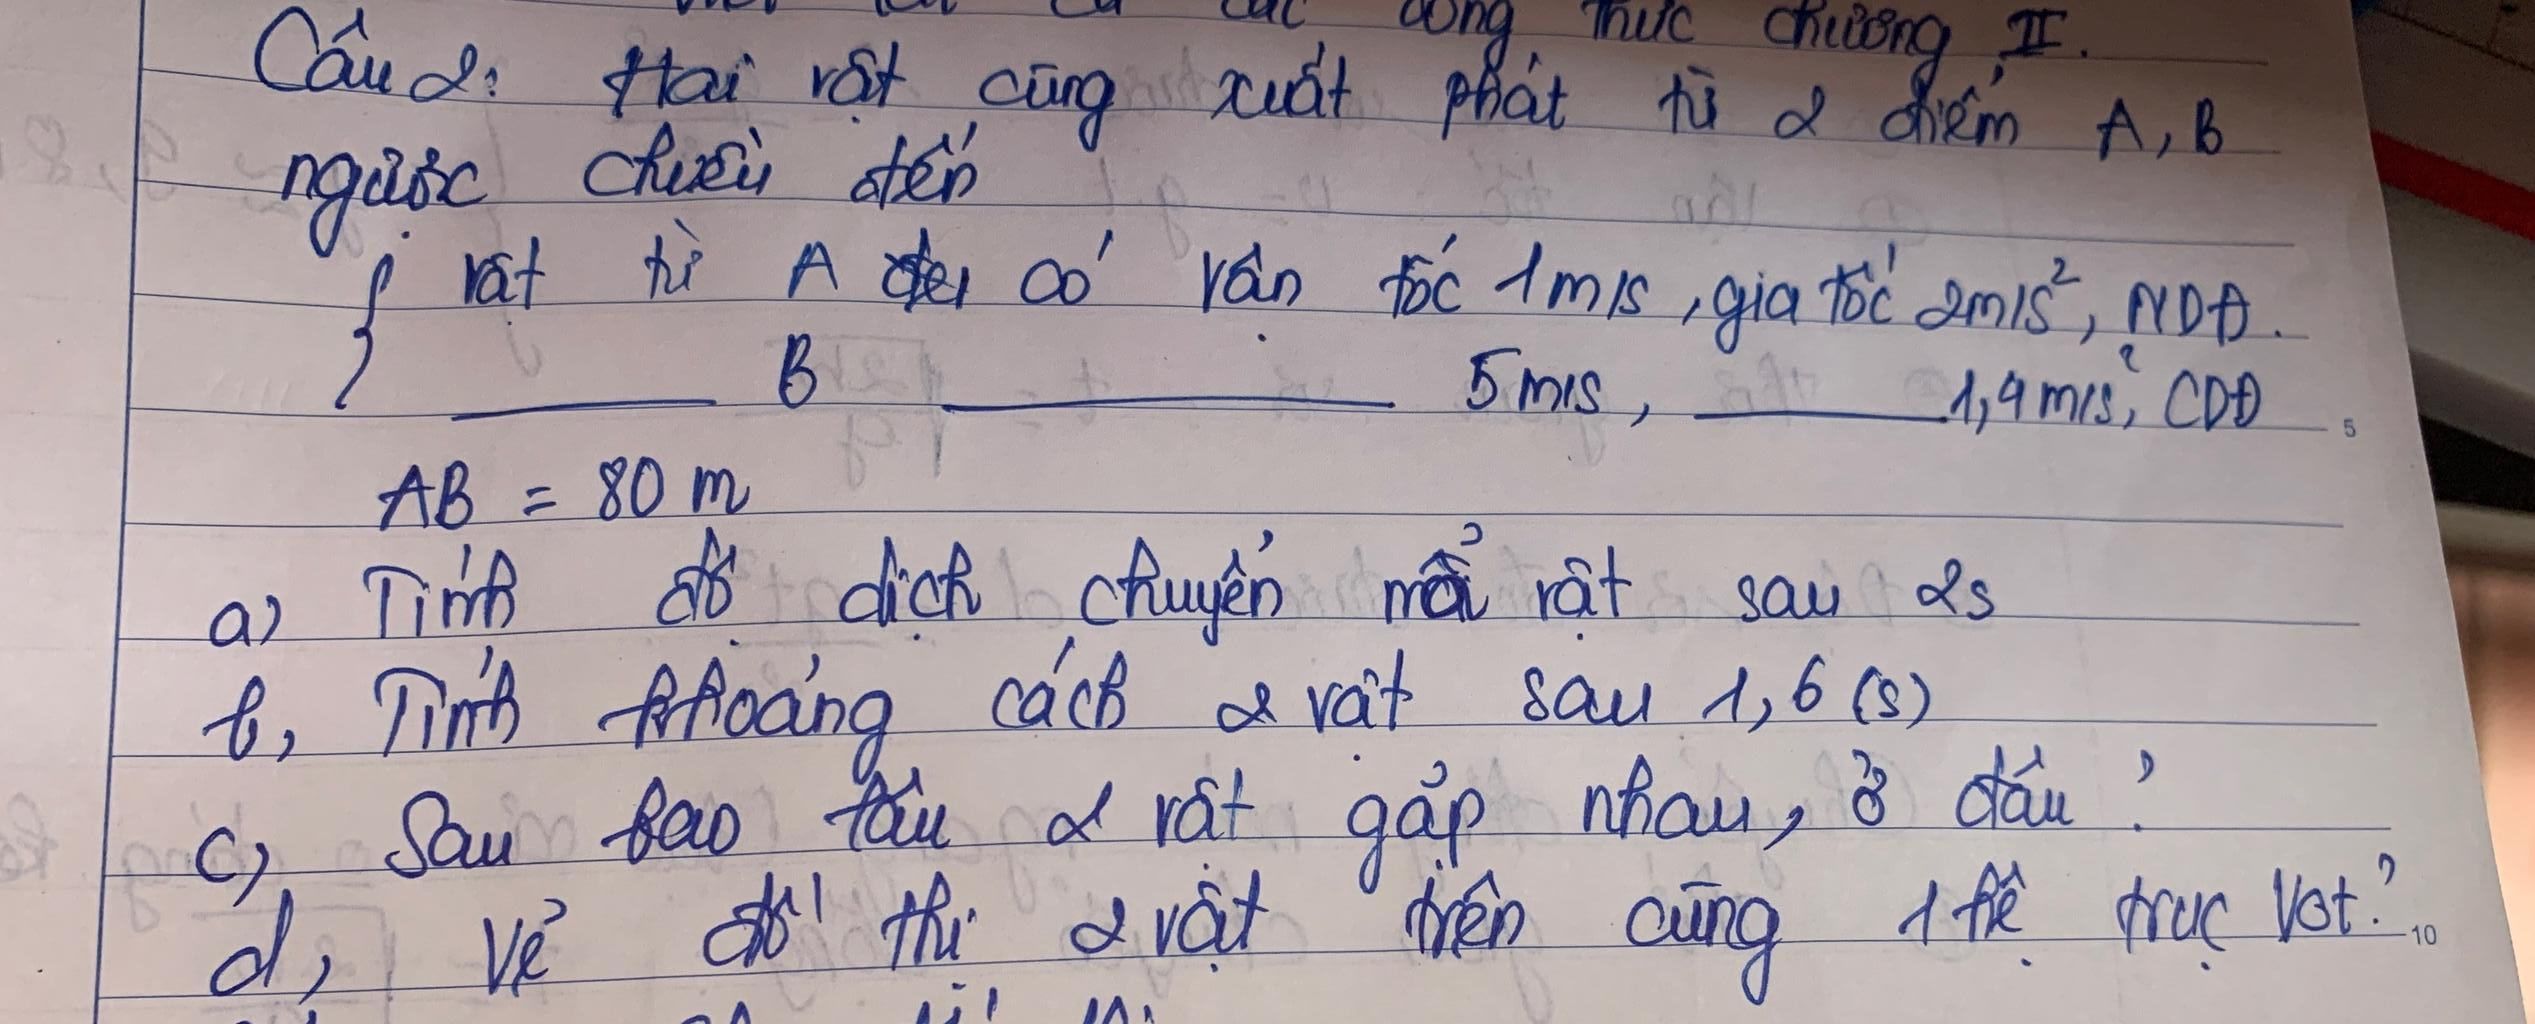 các công thức chương II.
Câu 2: Hai vật cùng xuất phát từ 2 điểm A, B
ngược chiều đến
{ vật từ A có vận tốc 1m/s, gia tốc 2m/s², NDĐ.
____ B ____ 5m/s, ____ 1,4m/s², CDĐ
AB = 80 m
a) Tính độ dịch chuyển mỗi vật sau 2s
b, Tính khoảng cách 2 vật sau 1,6 (s)
c, Sau bao lâu 2 vật gặp nhau, ở đâu?
d, Vẽ đồ thị 2 vật trên cùng 1 hệ trục vot?